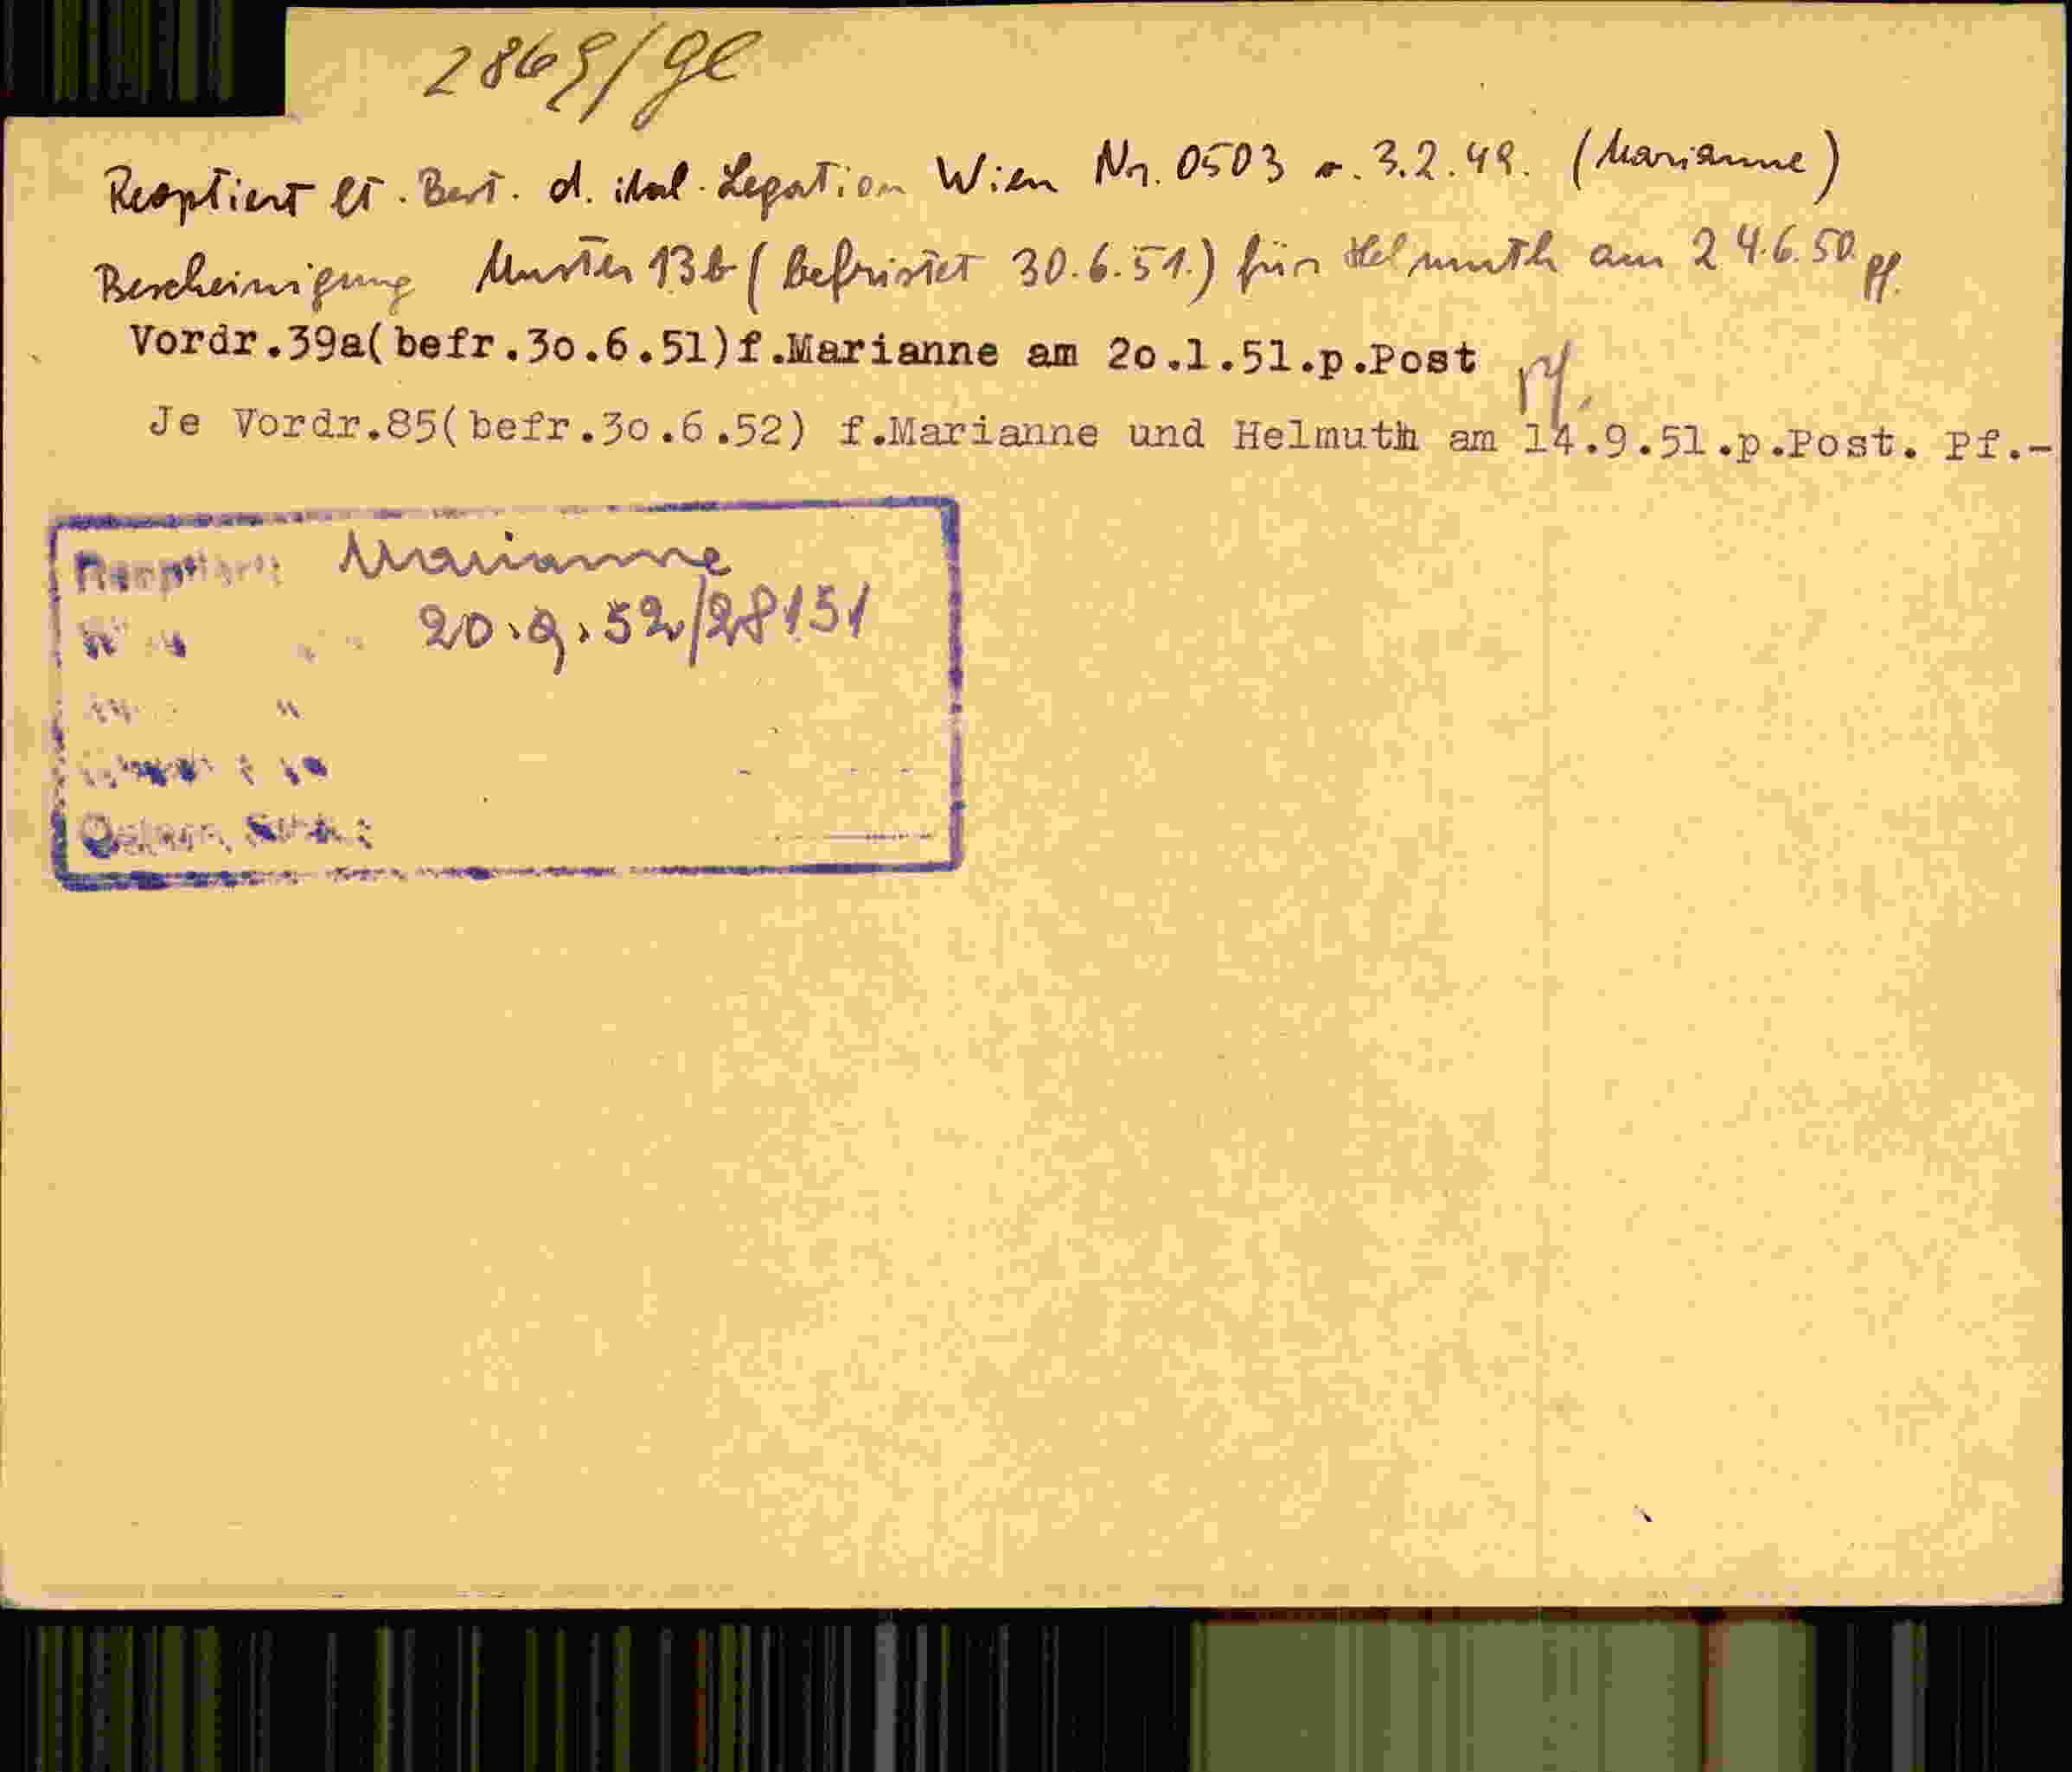 2869/ge
Reoptiert lt. Best. d. ital. Legation Wien Nr. 0503 v. 3.2.49. (Marianne)
Bescheinigung Muster 13b (befristet 30.6.51.) für Helmuth am 24.6.50. pf.
Vordr.39a(befr.3o.6.51)f.Marianne am 2o.1.51.p.Post pf.
Je Vordr.85(befr.3o.6.52) f.Marianne und Helmuth am 14.9.51.p.Post. Pf.-
Marianne
20.9.52/28151